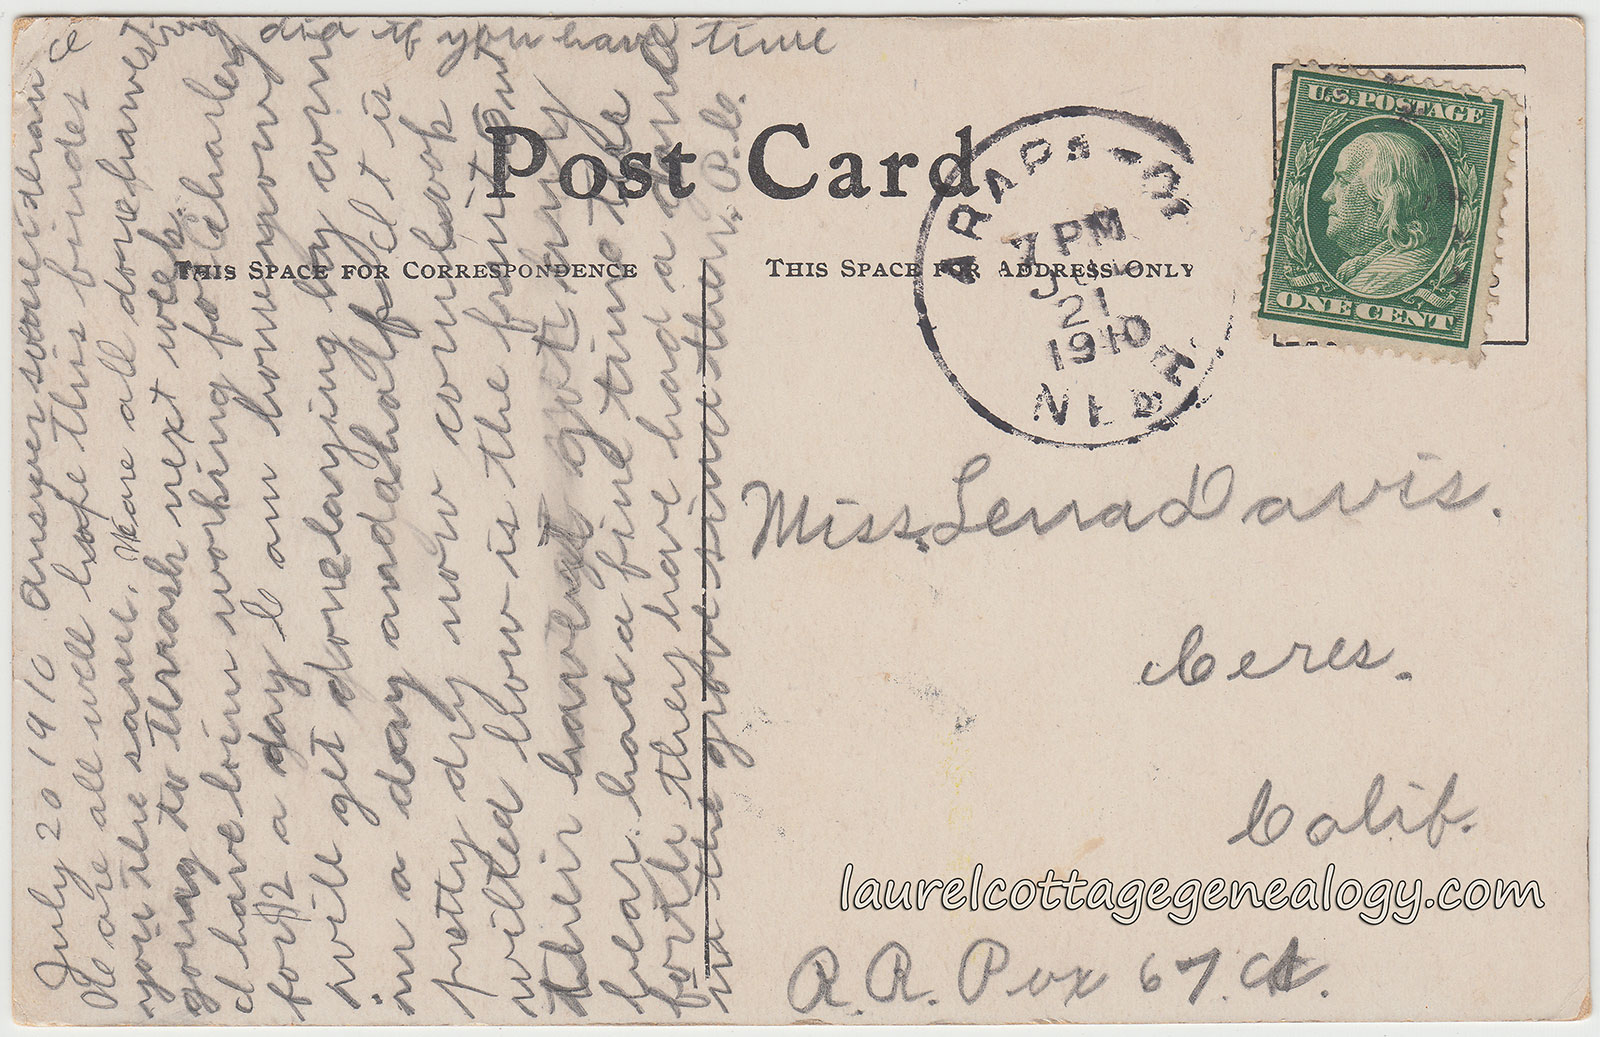 Post Card
THIS SPACE FOR CORRESPONDENCE
THIS SPACE FOR ADDRESS ONLY
U.S. POSTAGE
ONE CENT
7 PM
21
1910
NEBR.
Miss. Lenna Davis.
Ceres.
Calif.
R. R. Pox 67. A.
laurelcottagegenealogy.com
July 20 1910 answer soone than
We are all well hope this findes
you the same. We are all done harvesting
going to thrash next week.
I have bin working for Charley
for $2 a day I am home now
will get done laying by corn
in a day and a half it is
pretty dry now corn look
wilted how is the fruit out
their have got any
hear. had a fine time the
forth they have had a
in the grove sinc then. P.C.
did if you have time